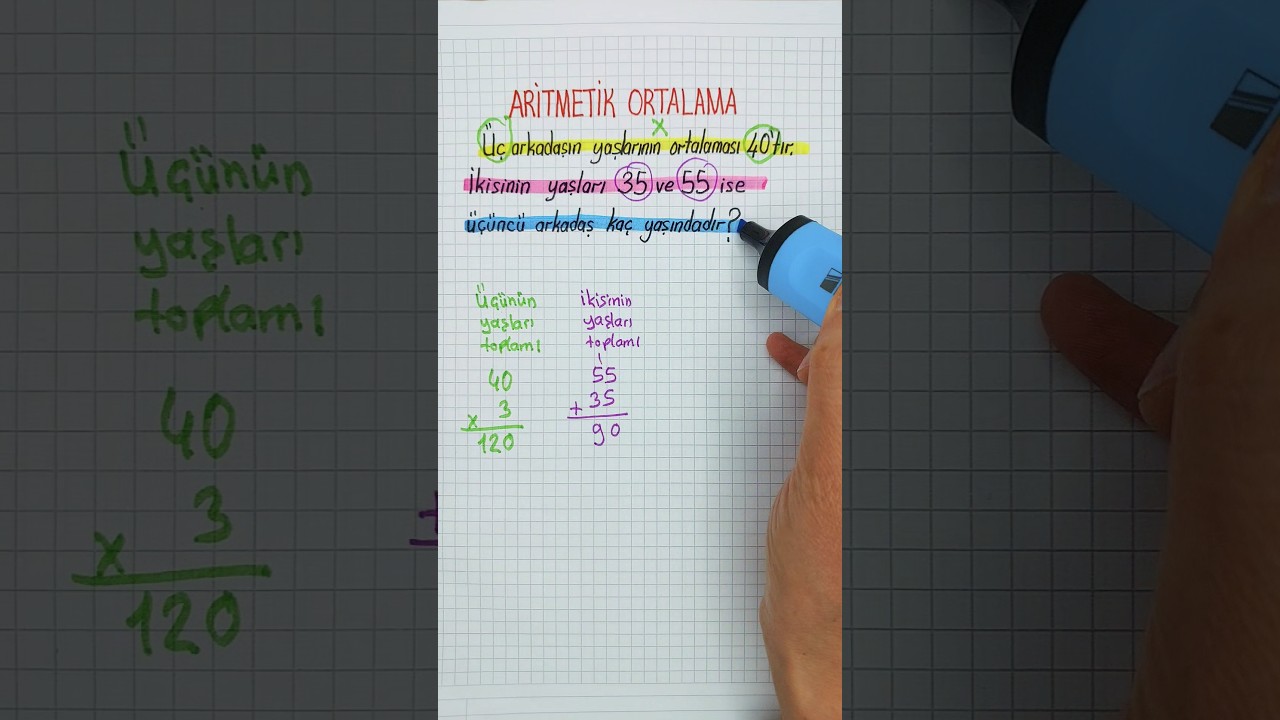 ARİTMETİK ORTALAMA
x
Üç arkadaşın yaşlarının ortalaması 40'tır.
İkisinin yaşları 35 ve 55 ise
üçüncü arkadaş kaç yaşındadır?
Üçünün
yaşları
toplamı
40
x 3
120
İkisinin
yaşları
toplamı
55
+ 35
90
Üçünün
yaşları
toplamı
40
x 3
120
+